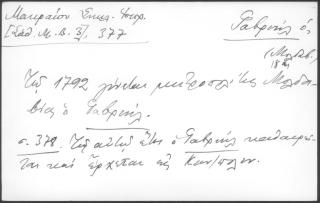 Μακραίου Σημ.-Ύπομ.
[Σάθ. Μ. Β. 3], 377
Γαβριήλ ὁ,
(Μολδαβ.
18 αἰ.)
Τῷ 1792 γίνεται μητροπολίτης Μολδο-
βίας ὁ Γαβριήλ.
σ. 378. Τῷ αὐτῷ ἔτει ὁ Γαβριήλ καθαιρεῖ-
ται καὶ ἔρχεται εἰς Κων/πολιν.